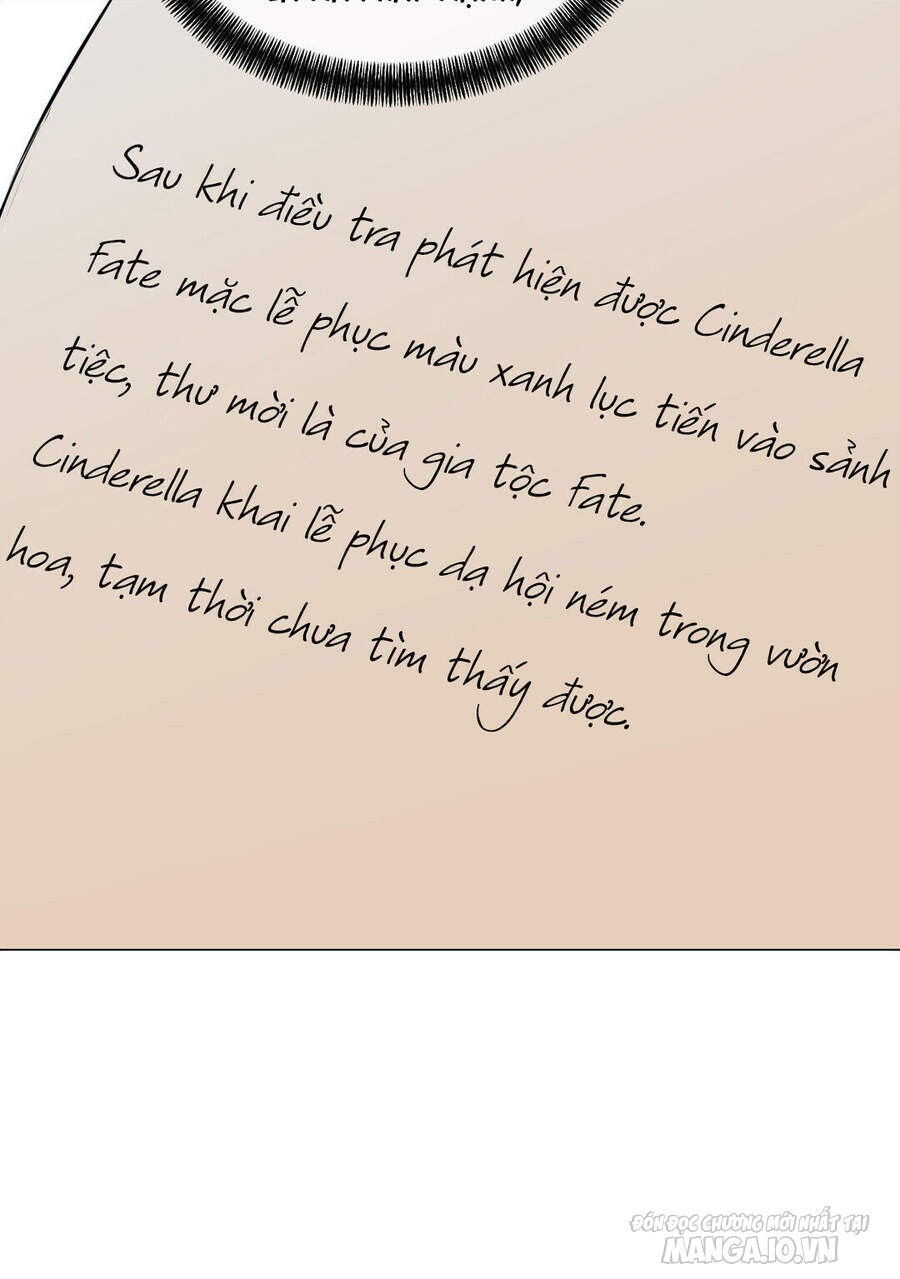 Sau khi điều tra phát hiện được Cinderella
Fate mặc lễ phục màu xanh lục tiến vào sảnh
tiệc, thư mời là của gia tộc Fate.
Cinderella khai lễ phục dạ hội ném trong vườn
hoa, tạm thời chưa tìm thấy được.
ĐÓN ĐỌC CHƯƠNG MỚI NHẤT TẠI
MANGA.IO.VN